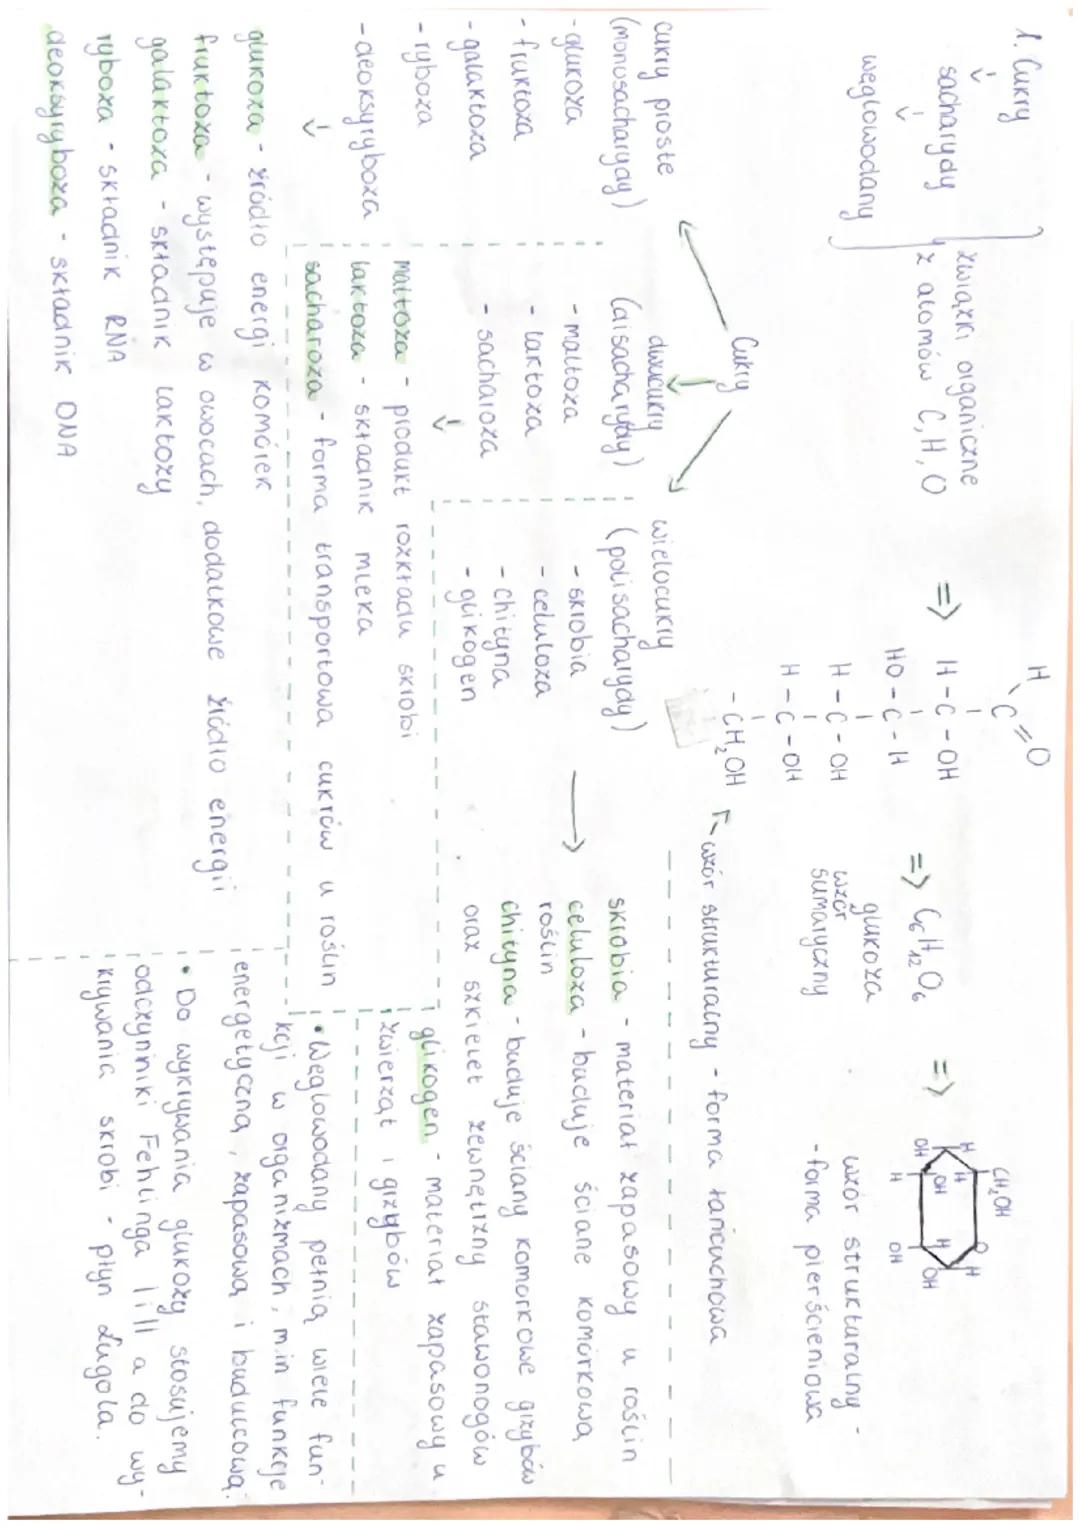 1. Cukry
sacharydy
węglowodany
związki organiczne
z atomów C, H, O
=>
H
C=O
H-C-OH
HO-C-H
H-C-OH
H-C-OH
-CH₂OH
wzór strukturalny - forma łańcuchowa
=> C₆H₁₂O₆
glukoza
wzór
sumaryczny
=>
CH₂OH
H O H
H
OH OH H OH
H OH
wzór strukturalny -
- forma pierścieniowa
Cukry
cukry proste
(monosacharydy)
- glukoza
- fruktoza
- galaktoza
- ryboza
- deoksyryboza
dwucukry
(disacharydy)
- maltoza
- laktoza
- sacharoza
wielocukry
(polisacharydy)
- skrobia
- celuloza
- chityna
- glikogen
skrobia - materiał zapasowy u roślin
celuloza - buduje ściane komórkową
roślin
chityna - buduje ściany komórkowe grzybów
oraz szkielet zewnętrzny stawonogów
glikogen - materiał zapasowy u
zwierząt i grzybów
maltoza - produkt rozkładu skrobi
laktoza - składnik mleka
sacharoza - forma transportowa cukrów u roślin
glukoza - źródło energi komórek
fruktoza - występuje w owocach, dodatkowe źródło energii
galaktoza - składnik laktozy
ryboza - składnik RNA
deoksyryboza - składnik DNA
• Węglowodany pełnią wiele fun-
kcji w organizmach, m.in funkcje
energetyczną, zapasową i budulcową.
• Do wykrywania glukozy stosujemy
odczyniki Fehlinga I i II a do wy-
krywania skrobi - płyn Lugola.